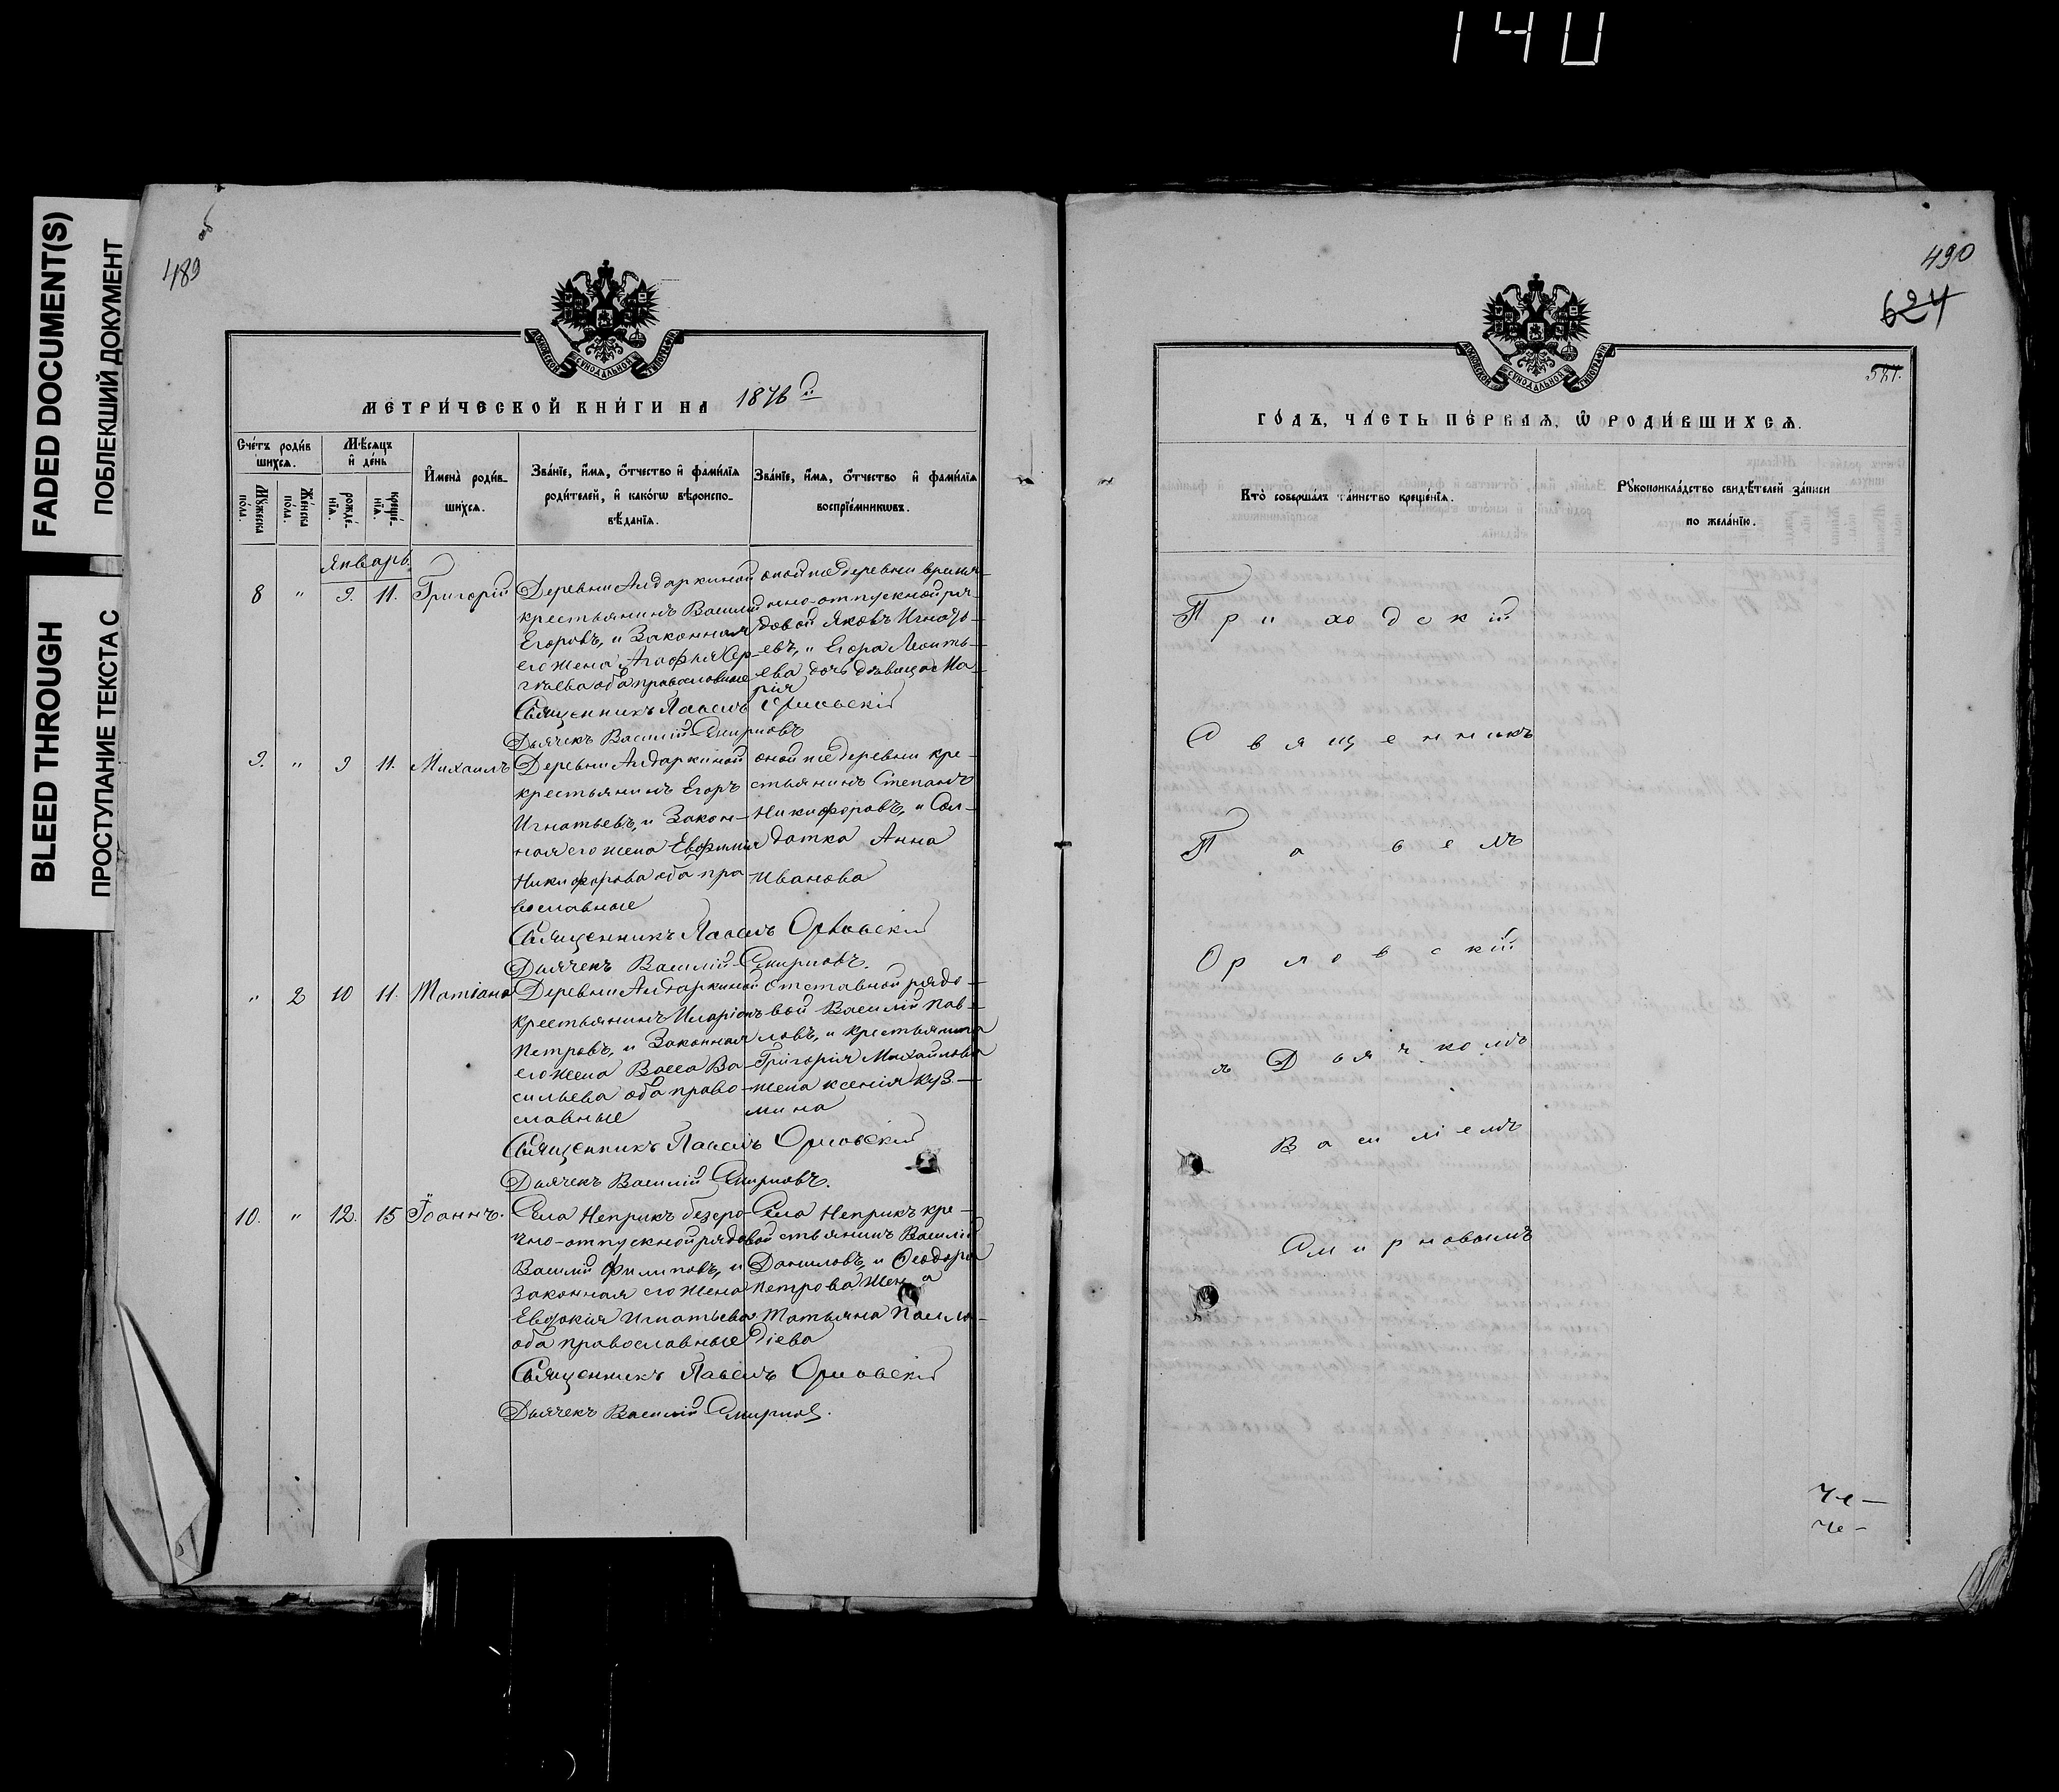 140
FADED DOCUMENT(S)
ПОБЛЕКШИЙ ДОКУМЕНТ
BLEED THROUGH
ПРОСТУПАНИЕ ТЕКСТА С
об
489
МОСКОВСКОЙ СѴНОДАЛЬНОЙ ТИПОГРАФІИ
МЕТРИ́ЧЕСКОЙ КНИ́ГИ НА 1876й
Сче́тъ роди́в
шихсѧ.
Мѣ́сѧцъ
и҆ де́нь
Мꙋ́жеска
пола.
Же́нска
пола.
рожде́-
нїѧ.
креще́-
нїѧ.
И҆мена̀ роди́в-
шихсѧ.
Зва́нїе, и҆́мѧ, ѻ҆́тчество и҆ фами́лїѧ
роди́телей, и҆ како́гѡ вѣроиспо-
вѣ́данїѧ.
Зва́нїе, и҆́мѧ, ѻ҆́тчество и҆ фами́лїѧ
воспрїе́мникѡвъ.
Январь.
8 " 9. 11. Григорій
Деревни Алдаркиной
крестьянинъ Василій
Егоровъ, и Законная
его жена Агафья Сер-
гѣева оба православные
оной же деревни времен-
но-отпускной ря-
довой Яковъ Игнать-
евъ, и Егора Леонть-
ева дочь дѣвица Ма-
рія
Священникъ Павелъ Орловскій
Дьячекъ Василій Смирновъ
9. " 9 11. Михаилъ
Деревни Алдаркиной
крестьянинъ Егоръ
Игнатьевъ, и Закон-
ная его жена Евфимия
Никифорова оба пра
вославные
оной же деревни кре-
стьянинъ Степанъ
Никифоровъ, и Сол-
датка Анна
Иванова
Священникъ Павелъ Орловскій
Дьячекъ Василій Смирновъ.
" 2 10 11. Татіана
Деревни Алдаркиной
крестьянинъ Иларіонъ
Петровъ, и Законная
его жена Васса Ва-
сильева оба право-
славные
отставной рядо-
вой Василій Пав-
ловъ, и крестьянина
Григорія Михайлова
жена ксенія Куз-
мина
Священникъ Павелъ Орловскій
Дьячекъ Василій Смирновъ.
10. " 12. 15 Іоаннъ.
Села Неприкъ безсро-
чно-отпускной рядовой
Василій Филиповъ, и
Законная его жена
Евдокия Игнатьева
оба православные
Села Неприкъ кре-
стьянинъ Василій
Даниловъ, и Ѳеодора
Петрова жена
Татьяна Палла-
діева
Священникъ Павелъ Орловскій
Дьячекъ Василій Смирновъ.
490
624
581.
МОСКОВСКОЙ СѴНОДАЛЬНОЙ ТИПОГРАФІИ
ГО́ДЪ, ЧА́СТЬ ПЕ́РВАѦ, Ѡ҆ РОДИ́ВШИХСѦ.
Кто̀ соверша́лъ та́инство креще́нїѧ.
Рꙋкоприкла́дство свидѣ́телей за́писи
по жела́нїю.
Приходскій
Священникъ
Павелъ
Орловскій
съ Дьячкомъ
Василіемъ
Смирновымъ
Че-
Че-